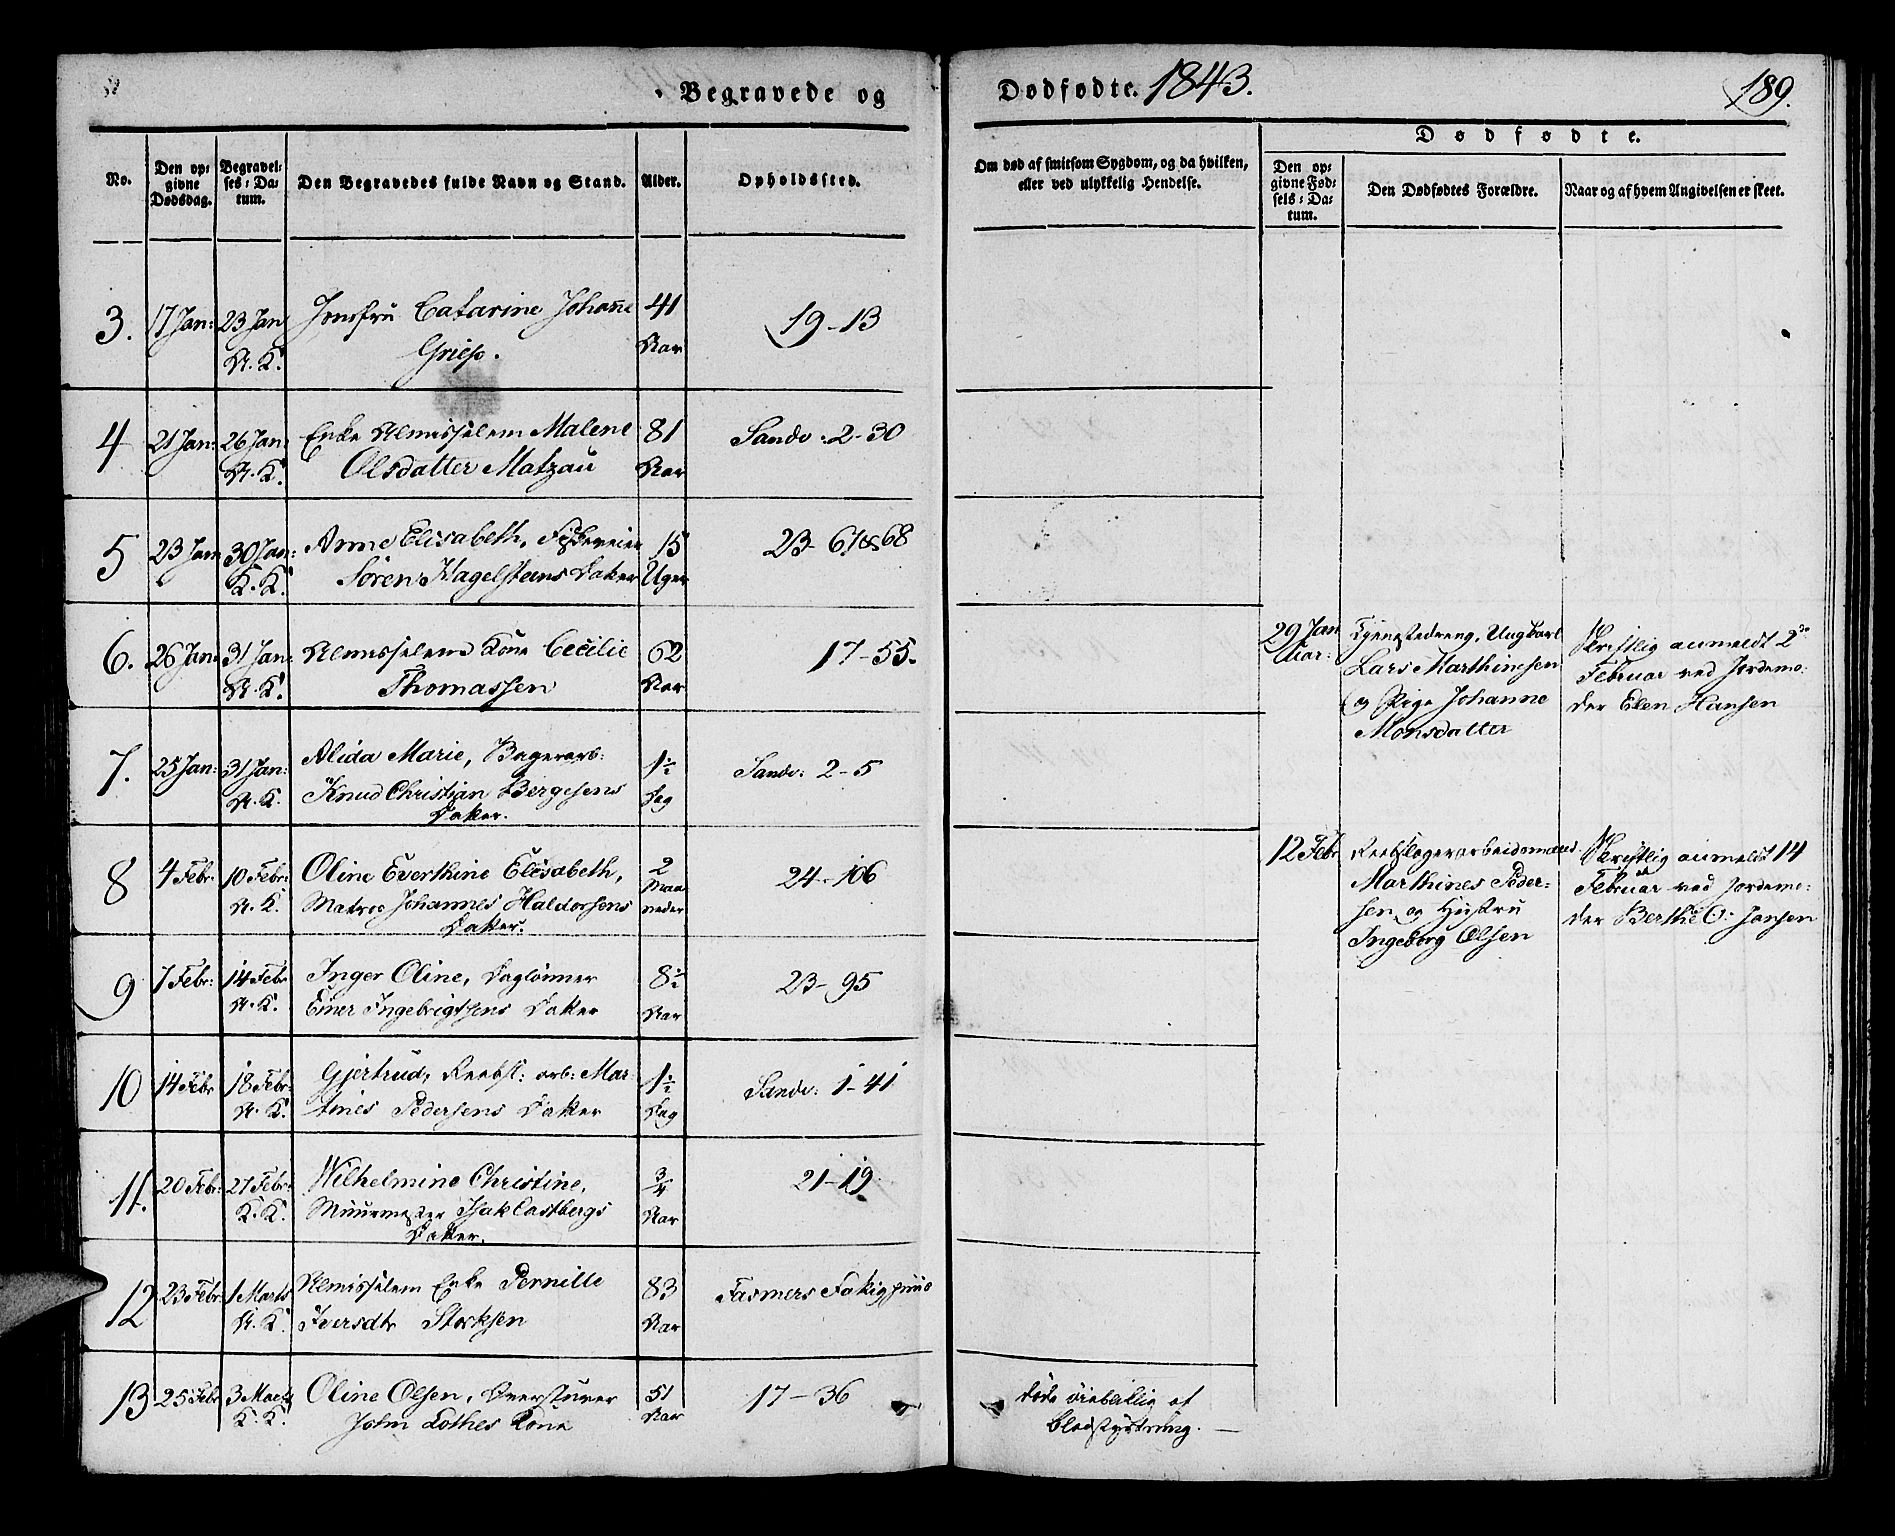 Begravede og Dødfødte. 1843. 189.
No.
Den opgivne Dødsdag.
Begravelses-Datum.
Den Begravedes fulde Navn og Stand.
Alder.
Opholdssted.
Om død af smitsom Sygdom, og da hvilken, eller ved ulykkelig Hendelse.
Dødfødte.
Den opgivne Fødsels-Datum.
Den Dødfødtes Forældre.
Naar og af hvem Angivelsen er skeet.
3. 17 Jan: 23 Jan Jomfru Catarine Johanne 41 19-13
A. K. Griep. Aar
4 21 Jan: 26 Jan: Enke Almisselem Malene 81 Sandv: 2-30
A. K. Olsdatter Matzau Aar
5 23 Jan 30 Jan: Anne Elisabeth, 15 23- 67&68
K. K. Søren Hagelsteens Datter Uger
6. 26 Jan: 31 Jan: Almisselems Kone Cecilie 62 17-55.
A. K. Thomassen Aar
29 Jan
uar:
Tjenestedreng, Ungkarl
Lars Marthinesen
og Pige Johanne
Monsdatter
Skriftlig anmeldt 2de
Februar ved Jordemo-
der Elen Hansen
7. 25 Jan: 31 Jan: Alida Marie, Bagerarb: 1½ Sandv: 2-5
A. K. Knud Christian Bergesens Dag
Datter.
8 4 Febr: 10 Febr: Oline Everthine Elisabeth, 2 24-106
A. K. Matros Johannes Haldorsens Maa
Datter. neder
12 Febr
Reebslagerarbeidsmand
Marthines Peder-
sen og Hustru
Ingeborg Olsen
Skriftlig anmeldt 14
Februar ved Jordemo-
der Berthe O: Jansen
9 7 Febr: 14 Febr Inger Oline, Daglønner 8½ 23-95
A. K. Einer Ingebrigtsens Datter Aar
10 14 Febr 18 Febr: Gjertrud, Reebsl: arb: Mar- 1½ Sandv: 1-41
A. K. tines Pedersens Datter Dag
11. 20 Febr: 27 Febr: Wilhelmine Christine, 3/4 21-19
K. K. Muurmester Isak Castbergs Aar
Datter.
12 23 Febr: 1 Marts Almisselem Enke Pernille 83 Fasmers Fattighuus
A. K. Iversdtr Storksen Aar
13 25 Febr 3 Marts Oline Olsen, 51 17-36
K. K. John Lothes Kone Aar
døde øieblikklig af
Blodstyrtning.